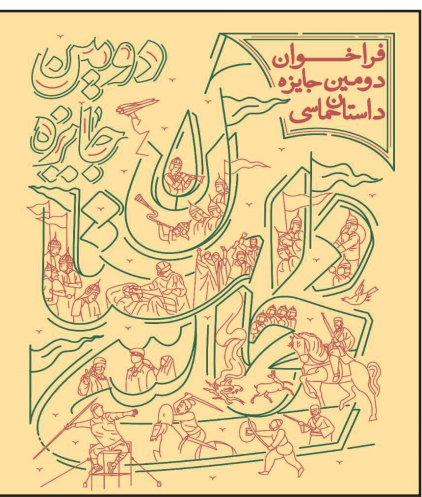 فراخـــوان
دومین جایزه
داستان حماسی
دومین
جایزه
داستان
حماسی